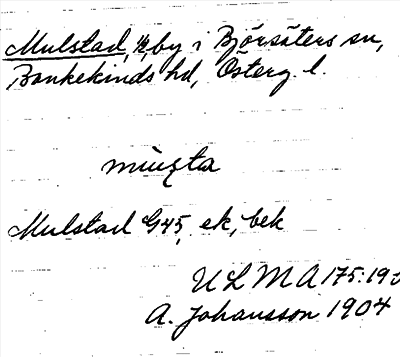 Mulstad, by i Björsäters sn,
Bankekinds hd, Österg. l.
Mulstad G45, ek, bek
ULMA 175:19
A. Johansson 1904